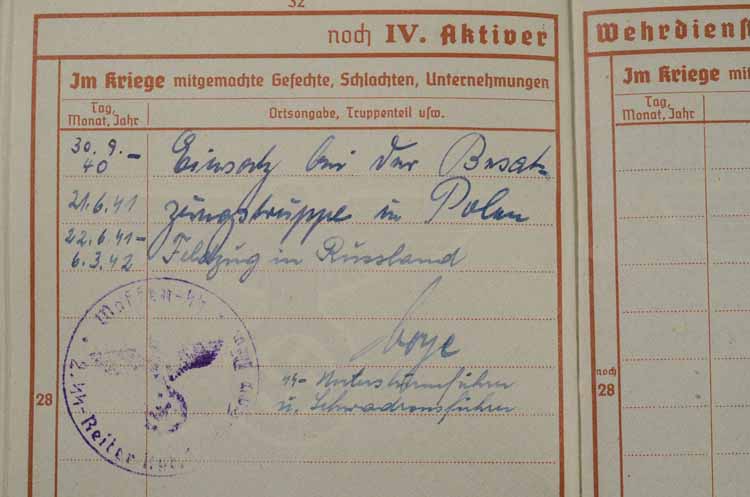 32
noch IV. Aktiver
Wehrdienst
Im Kriege mitgemachte Gefechte, Schlachten, Unternehmungen
Im Kriege mit
Tag, Monat, Jahr
Ortsangabe, Truppenteil usw.
Tag, Monat, Jahr
30.9.40 – Einsatz bei der Besat-
21.6.41 zungstruppe in Polen
22.6.41- Feldzug in Russland
6.3.42
SS-Untersturmführer
u. Schwadronsführer
Waffen-SS
2. SS-Reiter
28
noch
28